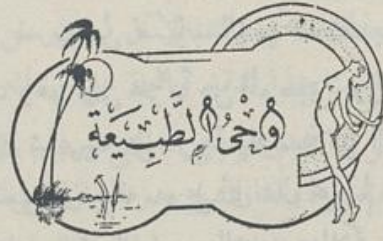 وَحْىُ الطَّبِيْعَةِ